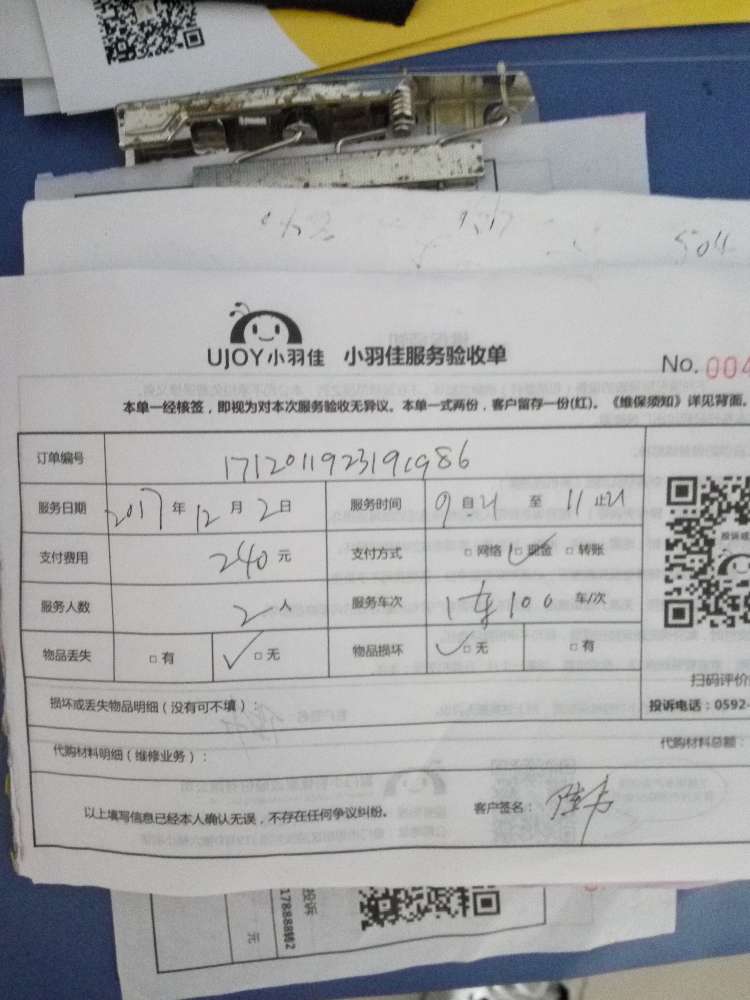 504
UJOY小羽佳 小羽佳服务验收单
No. 004
本单一经核签，即视为对本次服务验收无异议。本单一式两份，客户留存一份(红)。《维保须知》详见背面。
订单编号
服务日期 2017年12月2日 服务时间 9 至 11止
支付费用 240元 支付方式 □网络 □现金 □转账
服务人数 2人 服务车次 1车100 车/次
物品丢失 □有 □无 物品损坏 □无 □有
扫码评价
损坏或丢失物品明细（没有可不填）：
投诉电话：0592-
代购材料明细（维修业务）：
代购材料总额：
以上填写信息已经本人确认无误，不存在任何争议纠纷。 客户签名：
投诉
178888转2
元